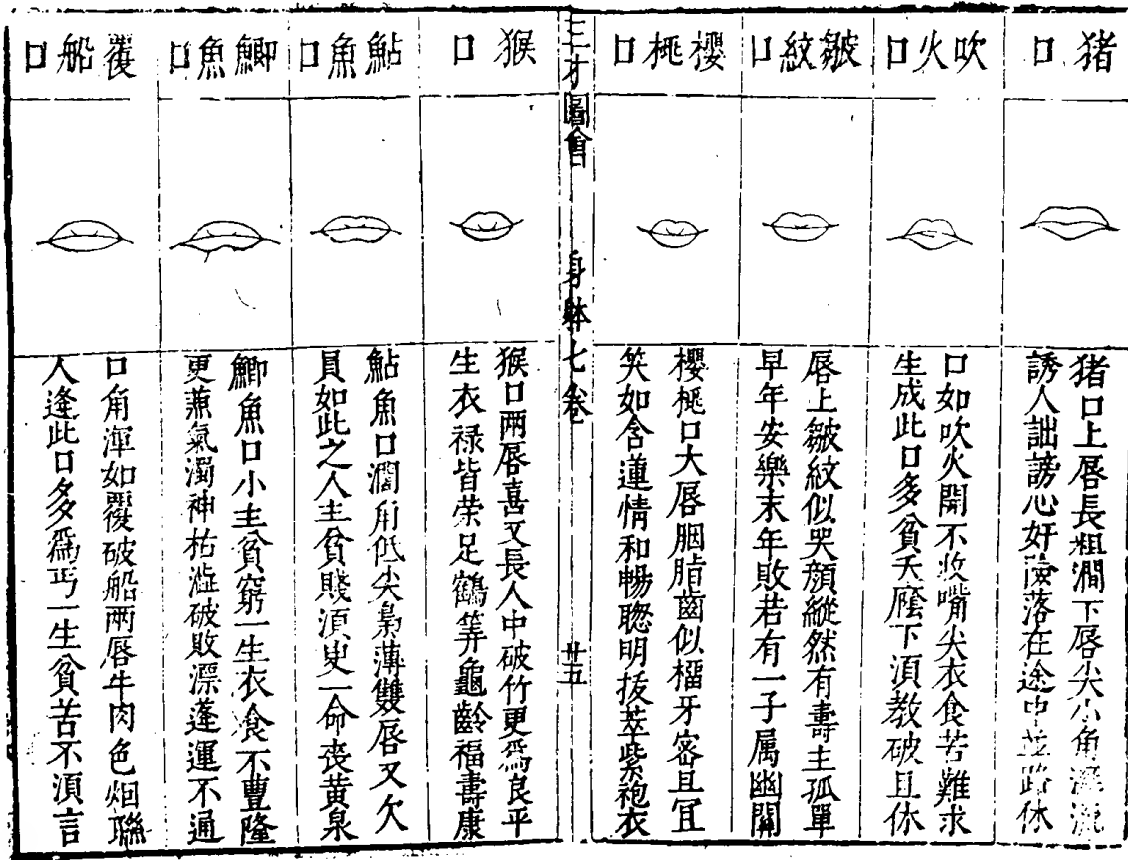 猪口
猪口上唇長粗濶下唇尖小角涎流
誘人訕謗心奸險落在途中並路休
吹火口
口如吹火開不收嘴尖衣食苦難求
生成此口多貧夭廕下須教破且休
皺紋口
唇上皺紋似哭顏縱然有壽主孤單
早年安樂末年敗若有一子属幽關
櫻桃口
櫻桃口大唇胭脂齒似榴牙密且宜
笑如含蓮情和暢聦明拔萃紫袍衣
三才圖會
身體七卷
廿五
猴口
猴口兩唇喜又長人中破竹更爲良平
生衣禄皆荣足鶴筭龜齡福壽康
鮎魚口
鮎魚口濶角低尖梟薄雙唇又欠
員如此之人主貧賤須臾一命丧黃泉
鯽魚口
鯽魚口小主貧窮一生衣飡不豐隆
更兼氣濁神枯澁破敗漂蓬運不通
覆船口
口角渾如覆破船兩唇牛肉色烟聮
人逢此口多爲丐一生貧苦不須言